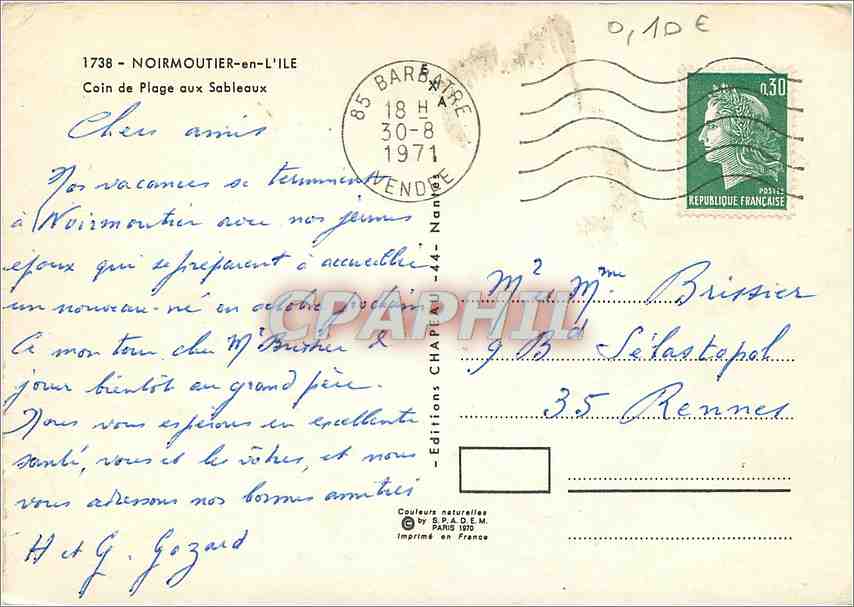 0,10€
1738 - NOIRMOUTIER-en-L'ILE
Coin de Plage aux Sableaux
Chers amis
Nos vacances se terminent
à Noirmoutier avec nos jeunes
époux qui se préparent à accueillir
un nouveau-né en octobre prochain
A mon tour cher Mr Brissier de
jouer bientôt au grand père.
Nous vous espérons en excellente
santé, vous et les vôtres, et nous
vous adressons nos bonnes amitiés
H et G. Gozard
85 BARBATRE
EXA
18 H
30-8
1971
VENDEE
0,30
POSTES
REPUBLIQUE FRANÇAISE
-Editions CHAPEAU -44- Nantes-
Mr et Mme Brissier
9 Bd Sébastopol
35 Rennes
CPAPHIL
Couleurs naturelles
© by S.P.A.D.E.M.
PARIS 1970
Imprimé en France